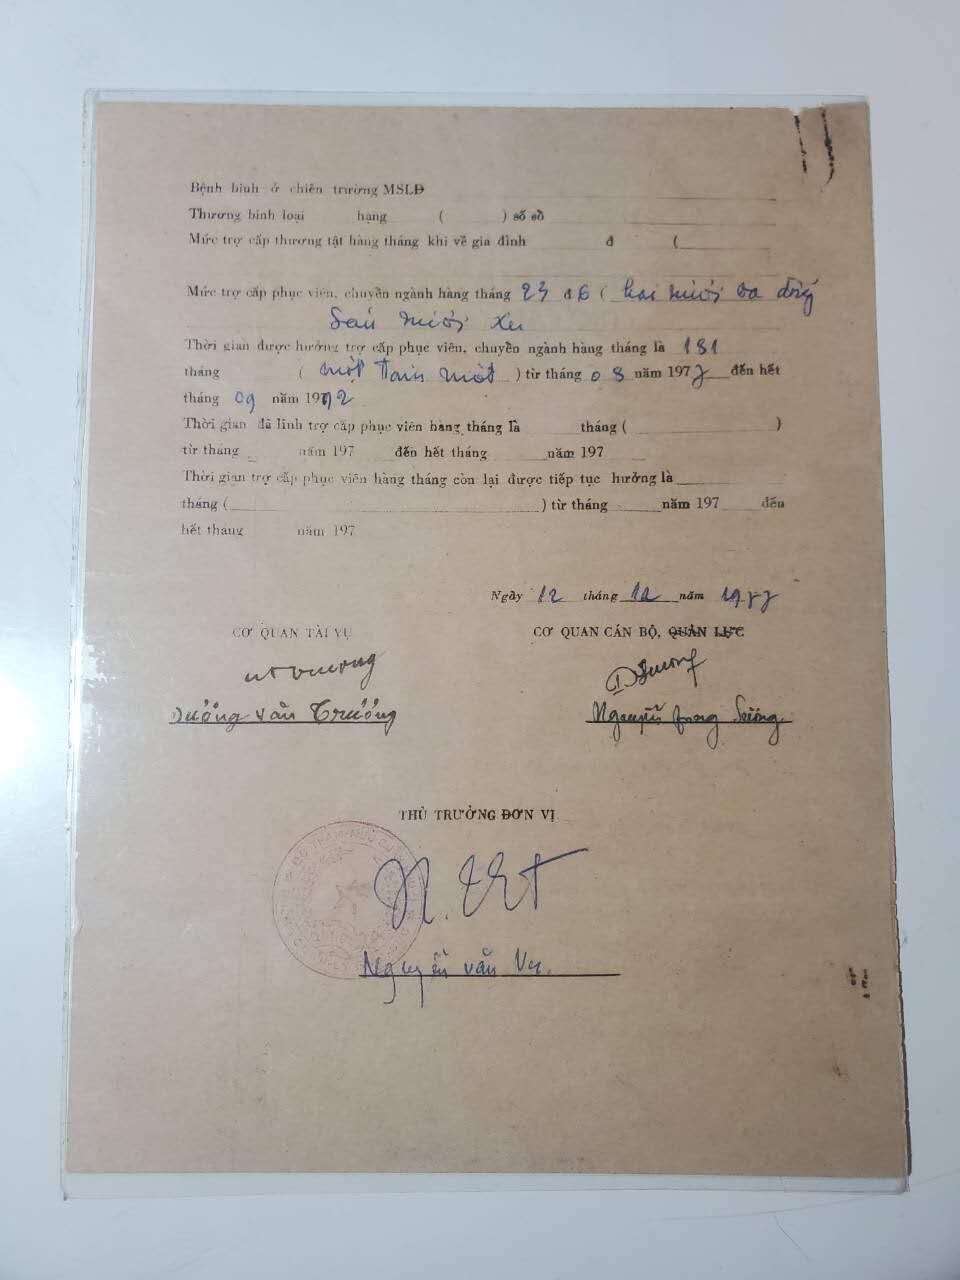 Bệnh binh ở chiến trường MSLĐ
Thương binh loại hạng ( ) số sổ
Mức trợ cấp thương tật hàng tháng khi về gia đình đ (
Mức trợ cấp phục viên, chuyển ngành hàng tháng 23 đ 6 ( hai mươi ba đồng
Sáu mươi xu
Thời gian được hưởng trợ cấp phục viên, chuyển ngành hàng tháng là 181
tháng ( một Tám một ) từ tháng 08 năm 1977 đến hết
tháng 09 năm 1992
Thời gian đã lĩnh trợ cấp phục viên hàng tháng là tháng ( )
từ tháng năm 197 đến hết tháng năm 197
Thời gian trợ cấp phục viên hàng tháng còn lại được tiếp tục hưởng là
tháng ( ) từ tháng năm 197 đến
hết tháng năm 197
Ngày 12 tháng 12 năm 1977
CƠ QUAN TÀI VỤ CƠ QUAN CÁN BỘ, QUẢN LỰC
Dương văn Trường Nguyễn Sương
THỦ TRƯỞNG ĐƠN VỊ
Nguyễn văn